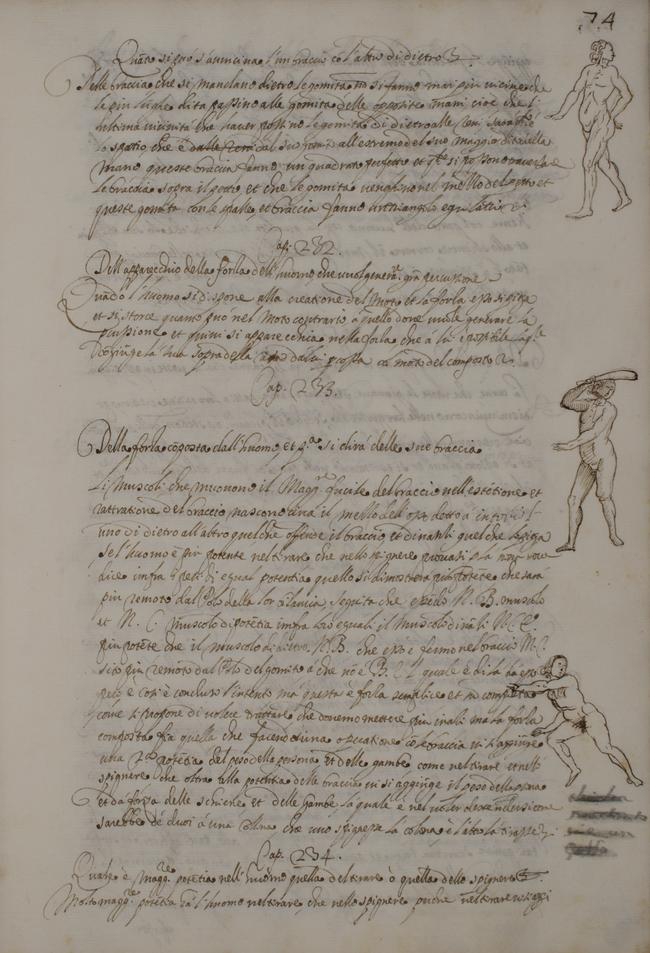 74
Quãto si può s'avvicina l'un braccio co l'altro di dietro
Delle braccia che si mandano dietro le gomita nõ si fanno mai più vicine che
le più lũghe dita passino alle gomita delle opposite mani, cioè che l'
ultima vicinità che haver possino le gomita di dietro alle
lo spatio che è dal suo gomito all'estremo del suo maggior dito della
mano queste braccia fanno un quadrato perfetto et
le braccia sopra il petto et che le gomita venghino nel mezzo del petto et
queste gomita con le spalle et braccia fanno un triangolo equilatero
Cap. 232.
Dell'apparecchio della forza dell'huomo che vuol generar grã percussione
Quãdo l'huomo si dispone alla creatione del moto et la forza esso si piega
et si storce quanto può nel moto contrario à quello dove vuole generare la
pcussione et quivi si apparecchia nella forza che à lui è possibile
cõgiũge la sua sopra della dallui pcossa co moto del composto
Cap. 233.
Della forza cõposta dall'huomo et pª si dirà delle sue braccia
Li muscoli che muovono il magʳᵉ fucile del braccio nell'estẽtione et
rattratione del braccio nascono circa il mezzo dell'osso detto
uno di dietro all'altro quel che offende il braccio et dinanzi quel che lo piega
Se l'huomo è più potente nel tirare che nello spignere
dice infra di equal potentia quello si dimostrerà più potẽte che sarà
più remoto dal Polo della lor bilancia seguita che essẽdo N. B. muscolo
et N. C. muscolo di potẽtia infra loro equali il muscolo dinãzi N. C. è
più potẽte che il muscolo di dietro N. B. che esso è fermo nel braccio
sito più remoto dal Polo del gomito à che nõ è B. il quale è di là da esso
polo e così è concluso l'intento ma questa è forza semplice et nõ composta
come si propone di volere trattare che dovemo mettere più inãzi ma la forza
composta fia quella che facendosi una operatione cõ le braccia vi s'aggiũge
una 2ª potẽtia del peso della persona et delle gambe come nel tirare et nello
spignere che oltra alla potẽtia delle braccia vi si aggiũge il peso della psona
et la forza delle schiene et delle gambe la quale è nel voler
sarebbe de duoi à una colõna che uno spignesse la colõna è l'altro la tirasse
Cap. 234.
Quale è maggʳᵉ potẽtia nell'huomo quella del tirare ò quella dello spignere
Molto maggʳᵉ potẽtia hà l'huomo nel tirare che nello spignere perche nel tirare